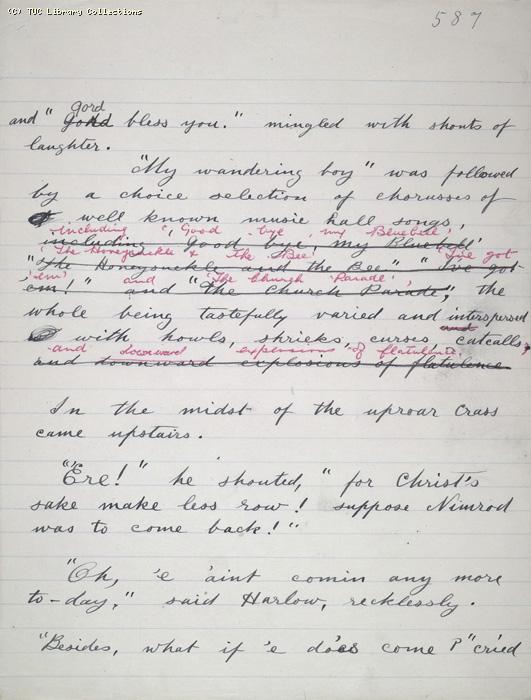 (C) TUC Library Collections
587
Gord
and "Gord bless you." mingled with shouts of
laughter.
"My wandering boy" was followed
by a choice selection of chorusses of
well known music hall songs,
including 'Good bye, my Bluebell'
including, 'Good bye, my Bluebell'
'The Honeysuckle & the Bee' 'I've got
"The Honeysuckle and the Bee" "I've got
'em!' and 'The Church Parade',
em!" and "The Church Parade", the
whole being tastefully varied and interspersed
with howls, shrieks, curses, and catcalls,
and downward explosions of flatulence.
and downward explosions of flatulence
In the midst of the uproar Crass
came upstairs.
"'Ere!" he shouted, "for Christ's
sake make less row! suppose Nimrod
was to come back!"
"Oh, 'e 'aint comin any more
to-day," said Harlow, recklessly.
"Besides, what if 'e does come?" cried